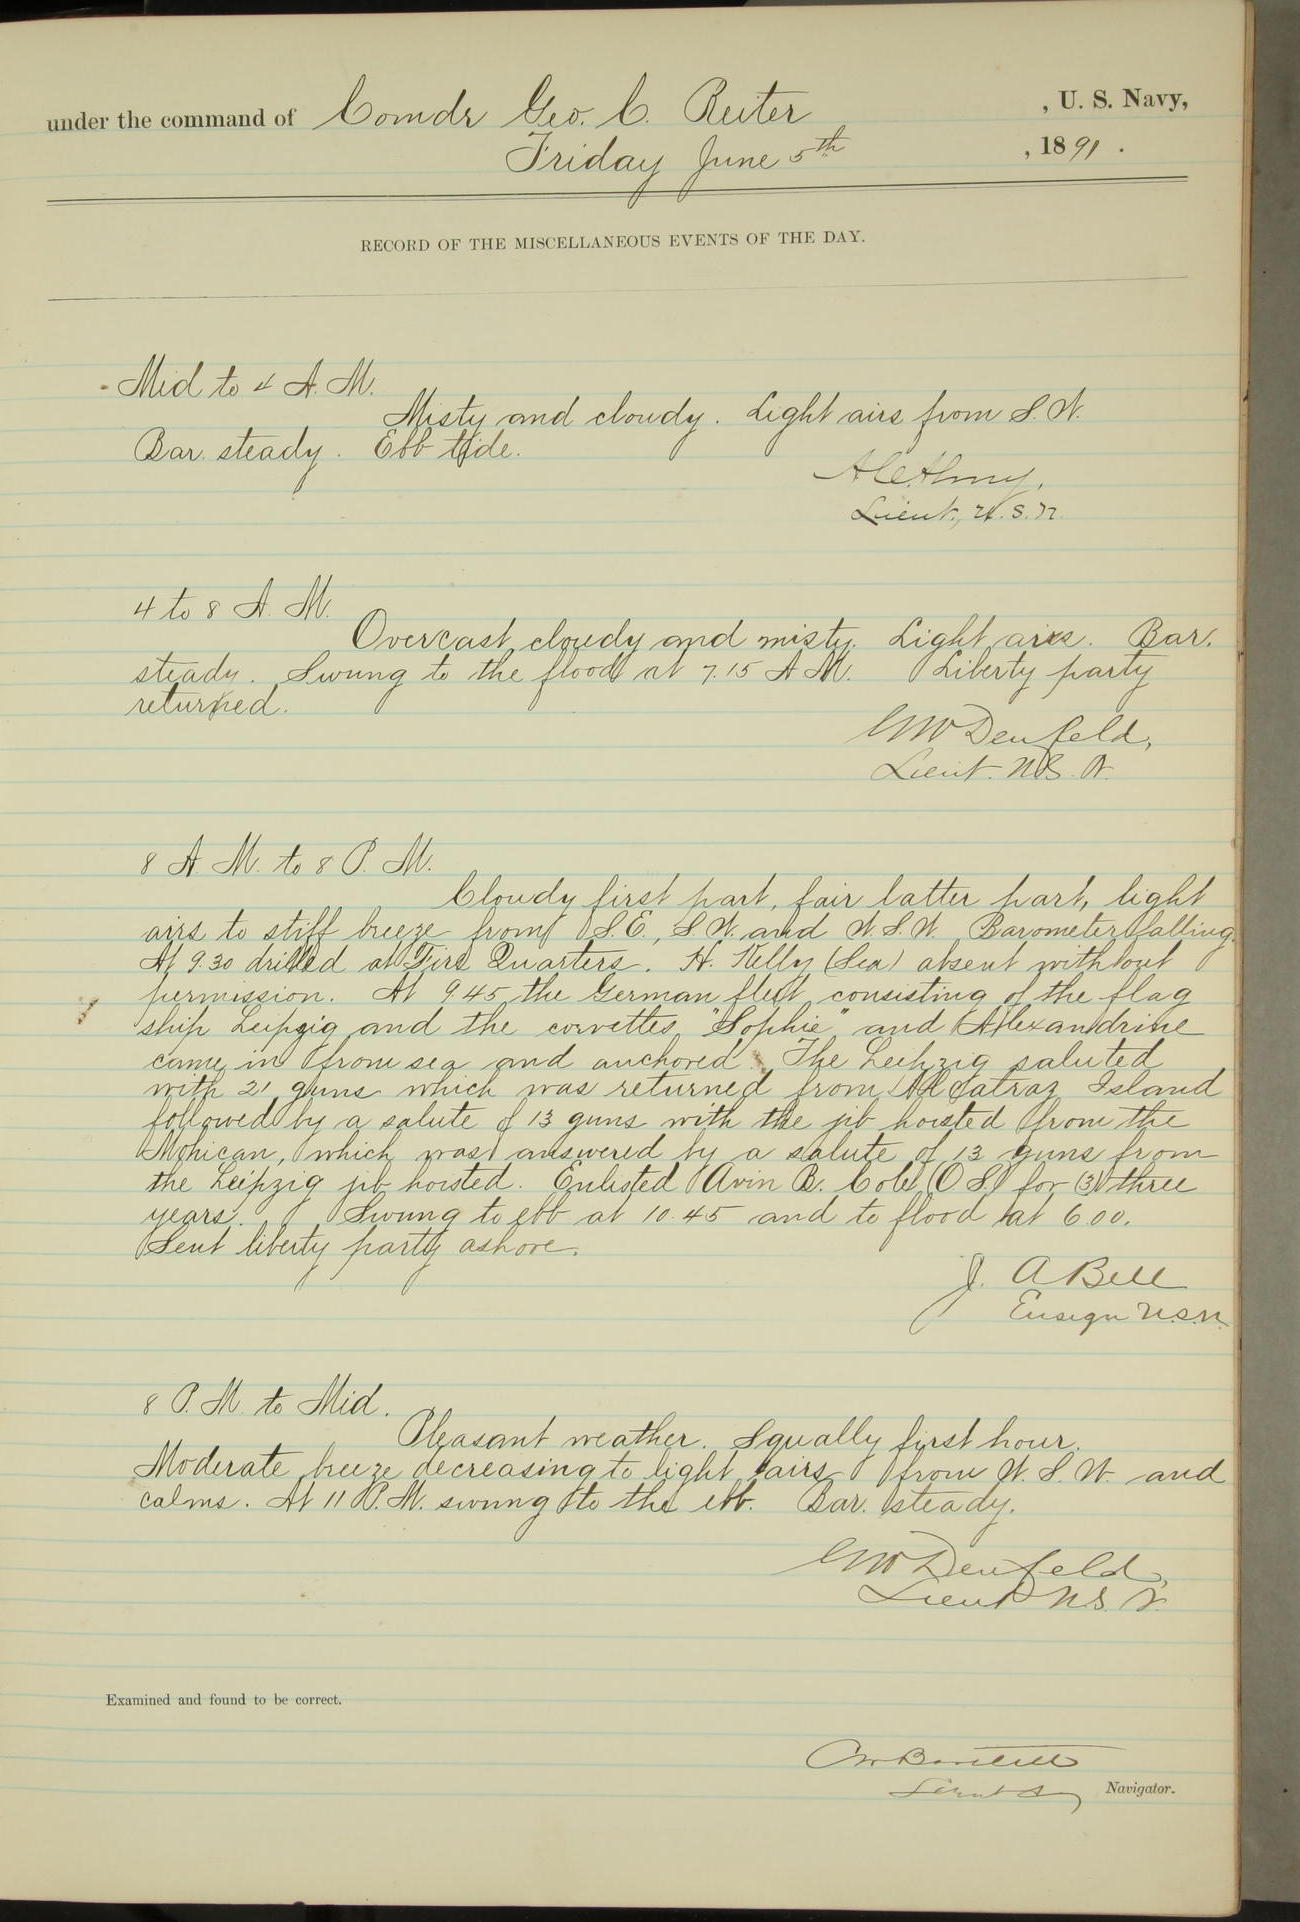 under the command of Comdr Geo. C. Reiter , U. S. Navy,
Friday June 5th , 1891 .
RECORD OF THE MISCELLANEOUS EVENTS OF THE DAY.
Mid to 4 A. M.
Misty and cloudy. Light airs from S. W.
Bar. steady. Ebb tide.
Lieut., U.S.N.
4 to 8 A. M.
Overcast cloudy and misty. Light airs. Bar.
steady. Swung to the flood at 7.15 A M. Liberty party
returned.
Denfeld,
Lieut. U.S. N.
8 A. M. to 8 P. M.
Cloudy first part, fair latter part, light
airs to stiff breeze from S.E., S W. and W. S. W. Barometer falling.
At 9.30 drilled at Fire Quarters. H. Kelly (Sea) absent without
permission. At 9 45 the German fleet consisting of the flag
ship Leipzig and the corvettes "Sophie" and Alexandrine
came in from sea and anchored. The Leipzig saluted
with 21 guns which was returned from Alcatraz Island
followed by a salute of 13 guns with the jib hoisted from the
Mohican, which was answered by a salute of 13 guns from
the Leipzig jib hoisted. Enlisted Avin B. Cole (O. S.) for (3) three
years. Swung to ebb at 10.45 and to flood at 6 00.
Sent liberty party ashore.
J. A Bell
Ensign U.S.N.
8 P. M. to Mid.
Pleasant weather. Squally first hour.
Moderate breeze decreasing to light airs from W. S. W. and
calms. At 11 P. M. swung to the ebb. Bar. steady.
Denfeld,
Lieut U.S. N.
Examined and found to be correct.
Navigator.